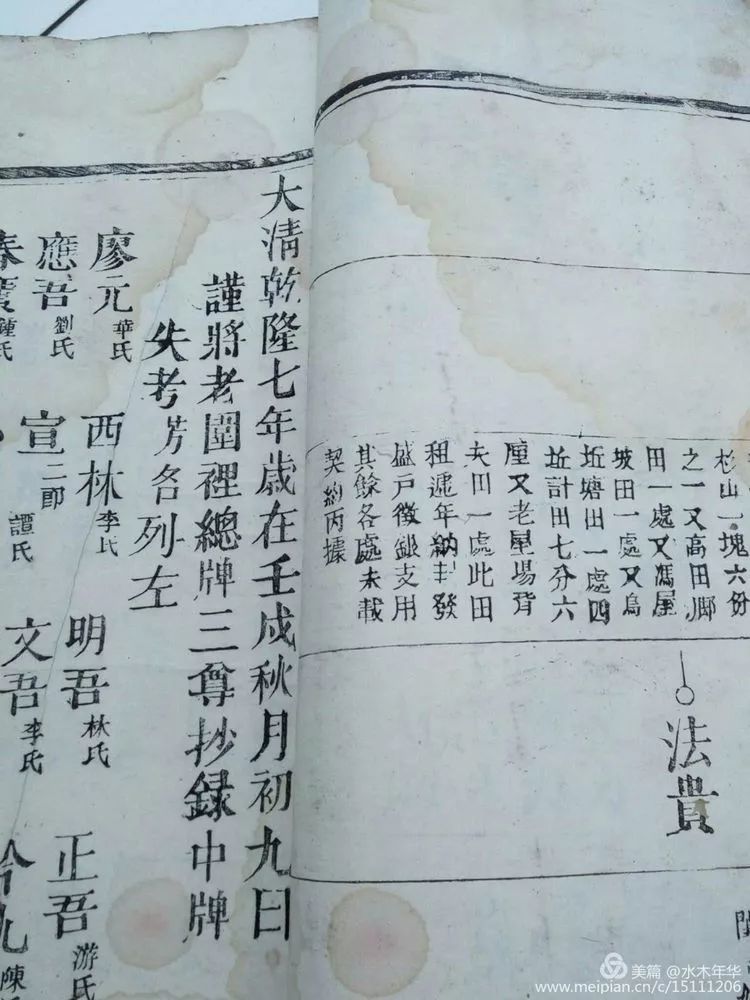 杉山一塊六份
之一又高田𨞬
田一處又馮屋
坡田一處又烏
坵塘田一處四
坵計田七分六
厘又老屋場背
夫田一處此田
租遞年納主發
盛戶徵銀支用
其餘各處未載
契約丙據
法貴
大清乾隆七年歲在壬戌秋月初九日
謹將老圍裡總牌三尊抄録中牌
失考芳名列左
廖元華氏 西林李氏 明吾林氏 正吾游氏
應吾劉氏 宣二郎譚氏 文吾李氏
鍾氏 九陳
美篇 @水木年华
www.meipian.cn/c/15111206